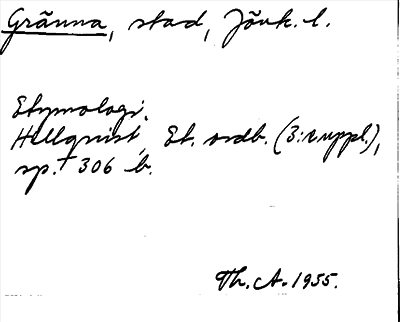 Gränna, stad, Jönk. l.
Etymologi.
Hellquist, Et. ordb. (3:e uppl.),
sp. 306 b.
Th. A. 1955.